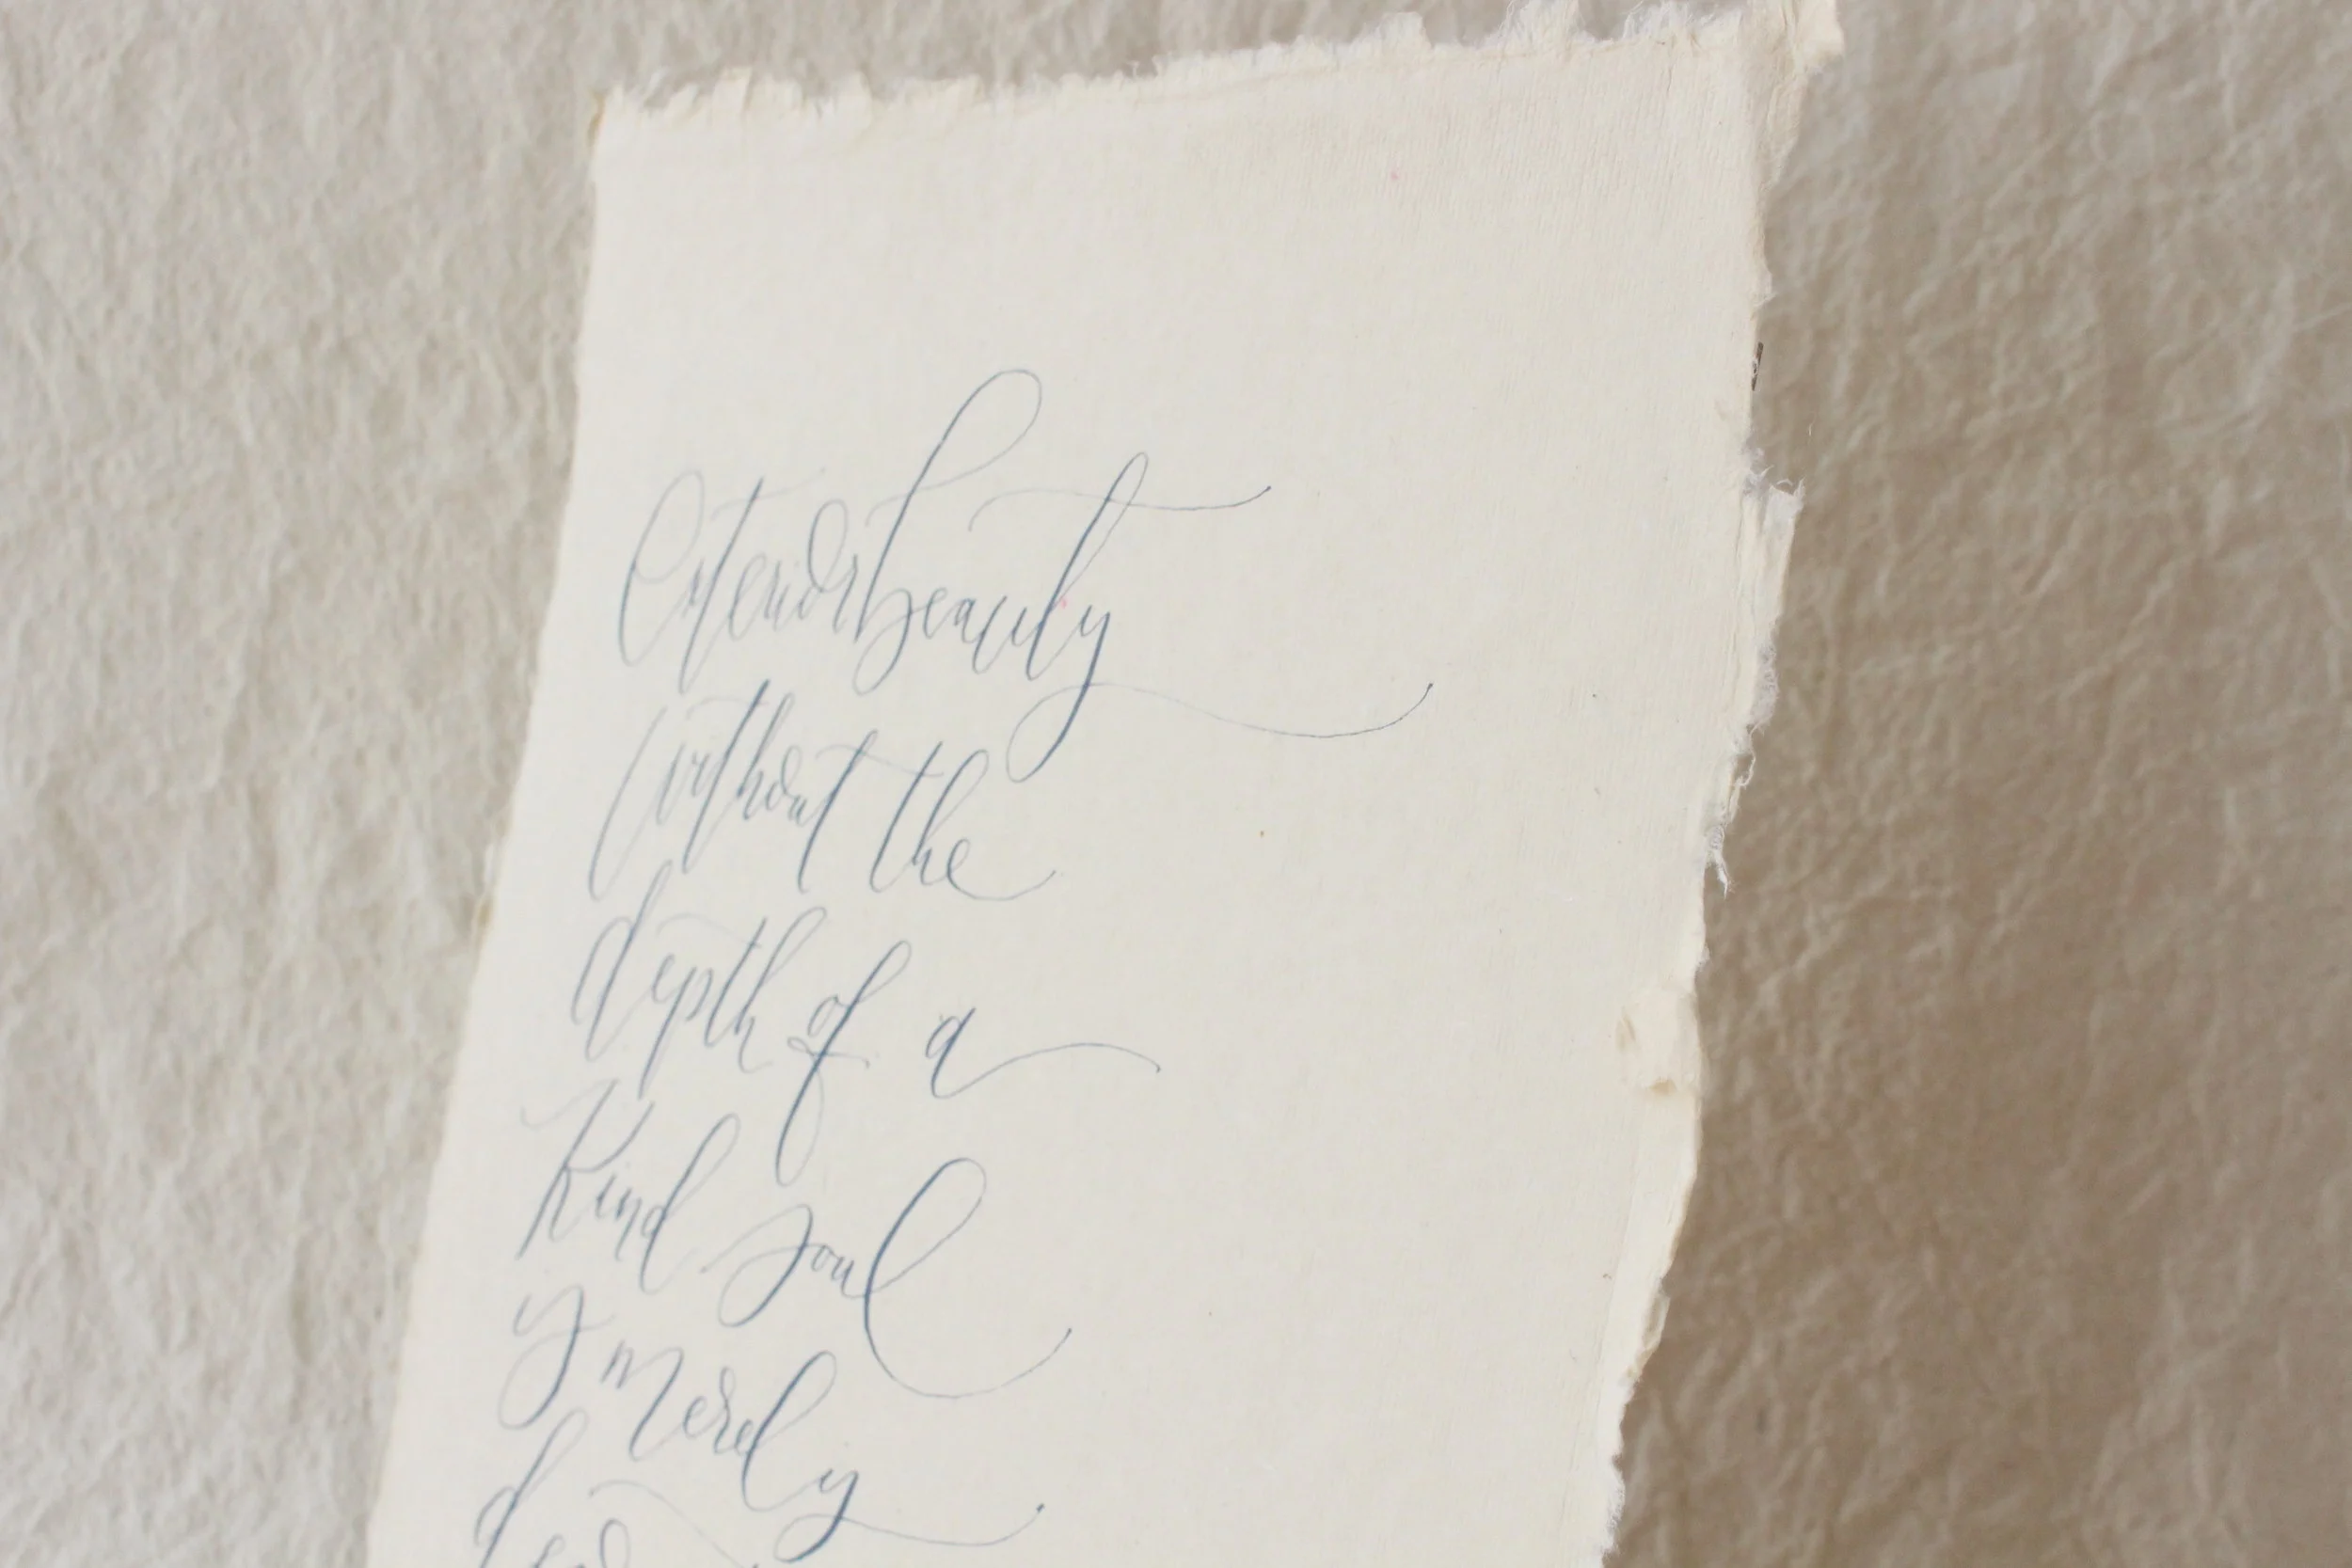 Exterior beauty
without the
depth of a
kind soul
is merely